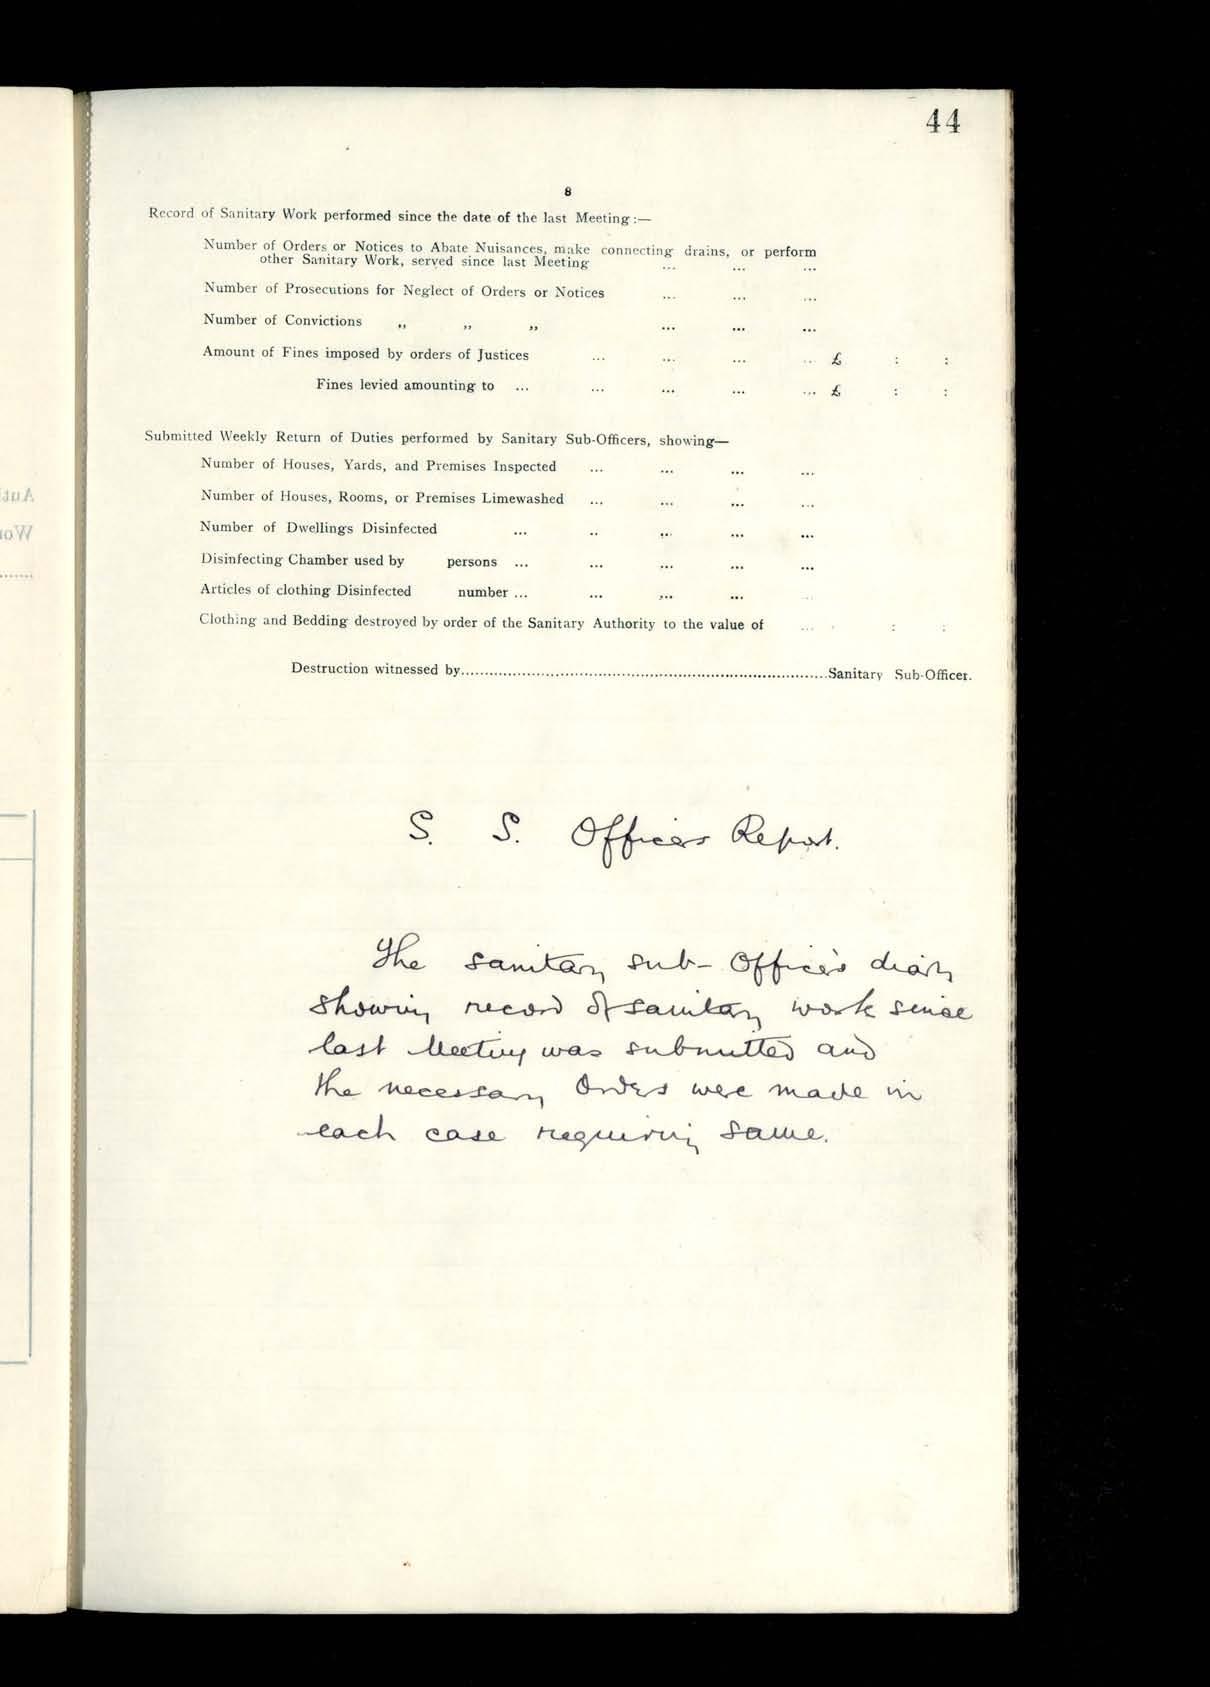 44
8
Record of Sanitary Work performed since the date of the last Meeting:—
Number of Orders or Notices to Abate Nuisances, make connecting drains, or perform
other Sanitary Work, served since last Meeting ... ... ...
Number of Prosecutions for Neglect of Orders or Notices ... ... ...
Number of Convictions ,, ,, ,, ... ... ...
Amount of Fines imposed by orders of Justices ... ... ... ... £ : :
Fines levied amounting to ... ... ... ... ... £ : :
Submitted Weekly Return of Duties performed by Sanitary Sub-Officers, showing—
Number of Houses, Yards, and Premises Inspected ... ... ... ...
Number of Houses, Rooms, or Premises Limewashed ... ... ... ...
Number of Dwellings Disinfected ... .. ... ... ...
Disinfecting Chamber used by persons ... ... ... ... ...
Articles of clothing Disinfected number ... ... ... ... ...
Clothing and Bedding destroyed by order of the Sanitary Authority to the value of ... . : :
Destruction witnessed by..............................................................................Sanitary Sub-Officer.
S. S. Officers Report.
The sanitary sub-Officer's diary
showing record of sanitary work since
last Meeting was submitted and
the necessary Orders were made in
each case requiring same.